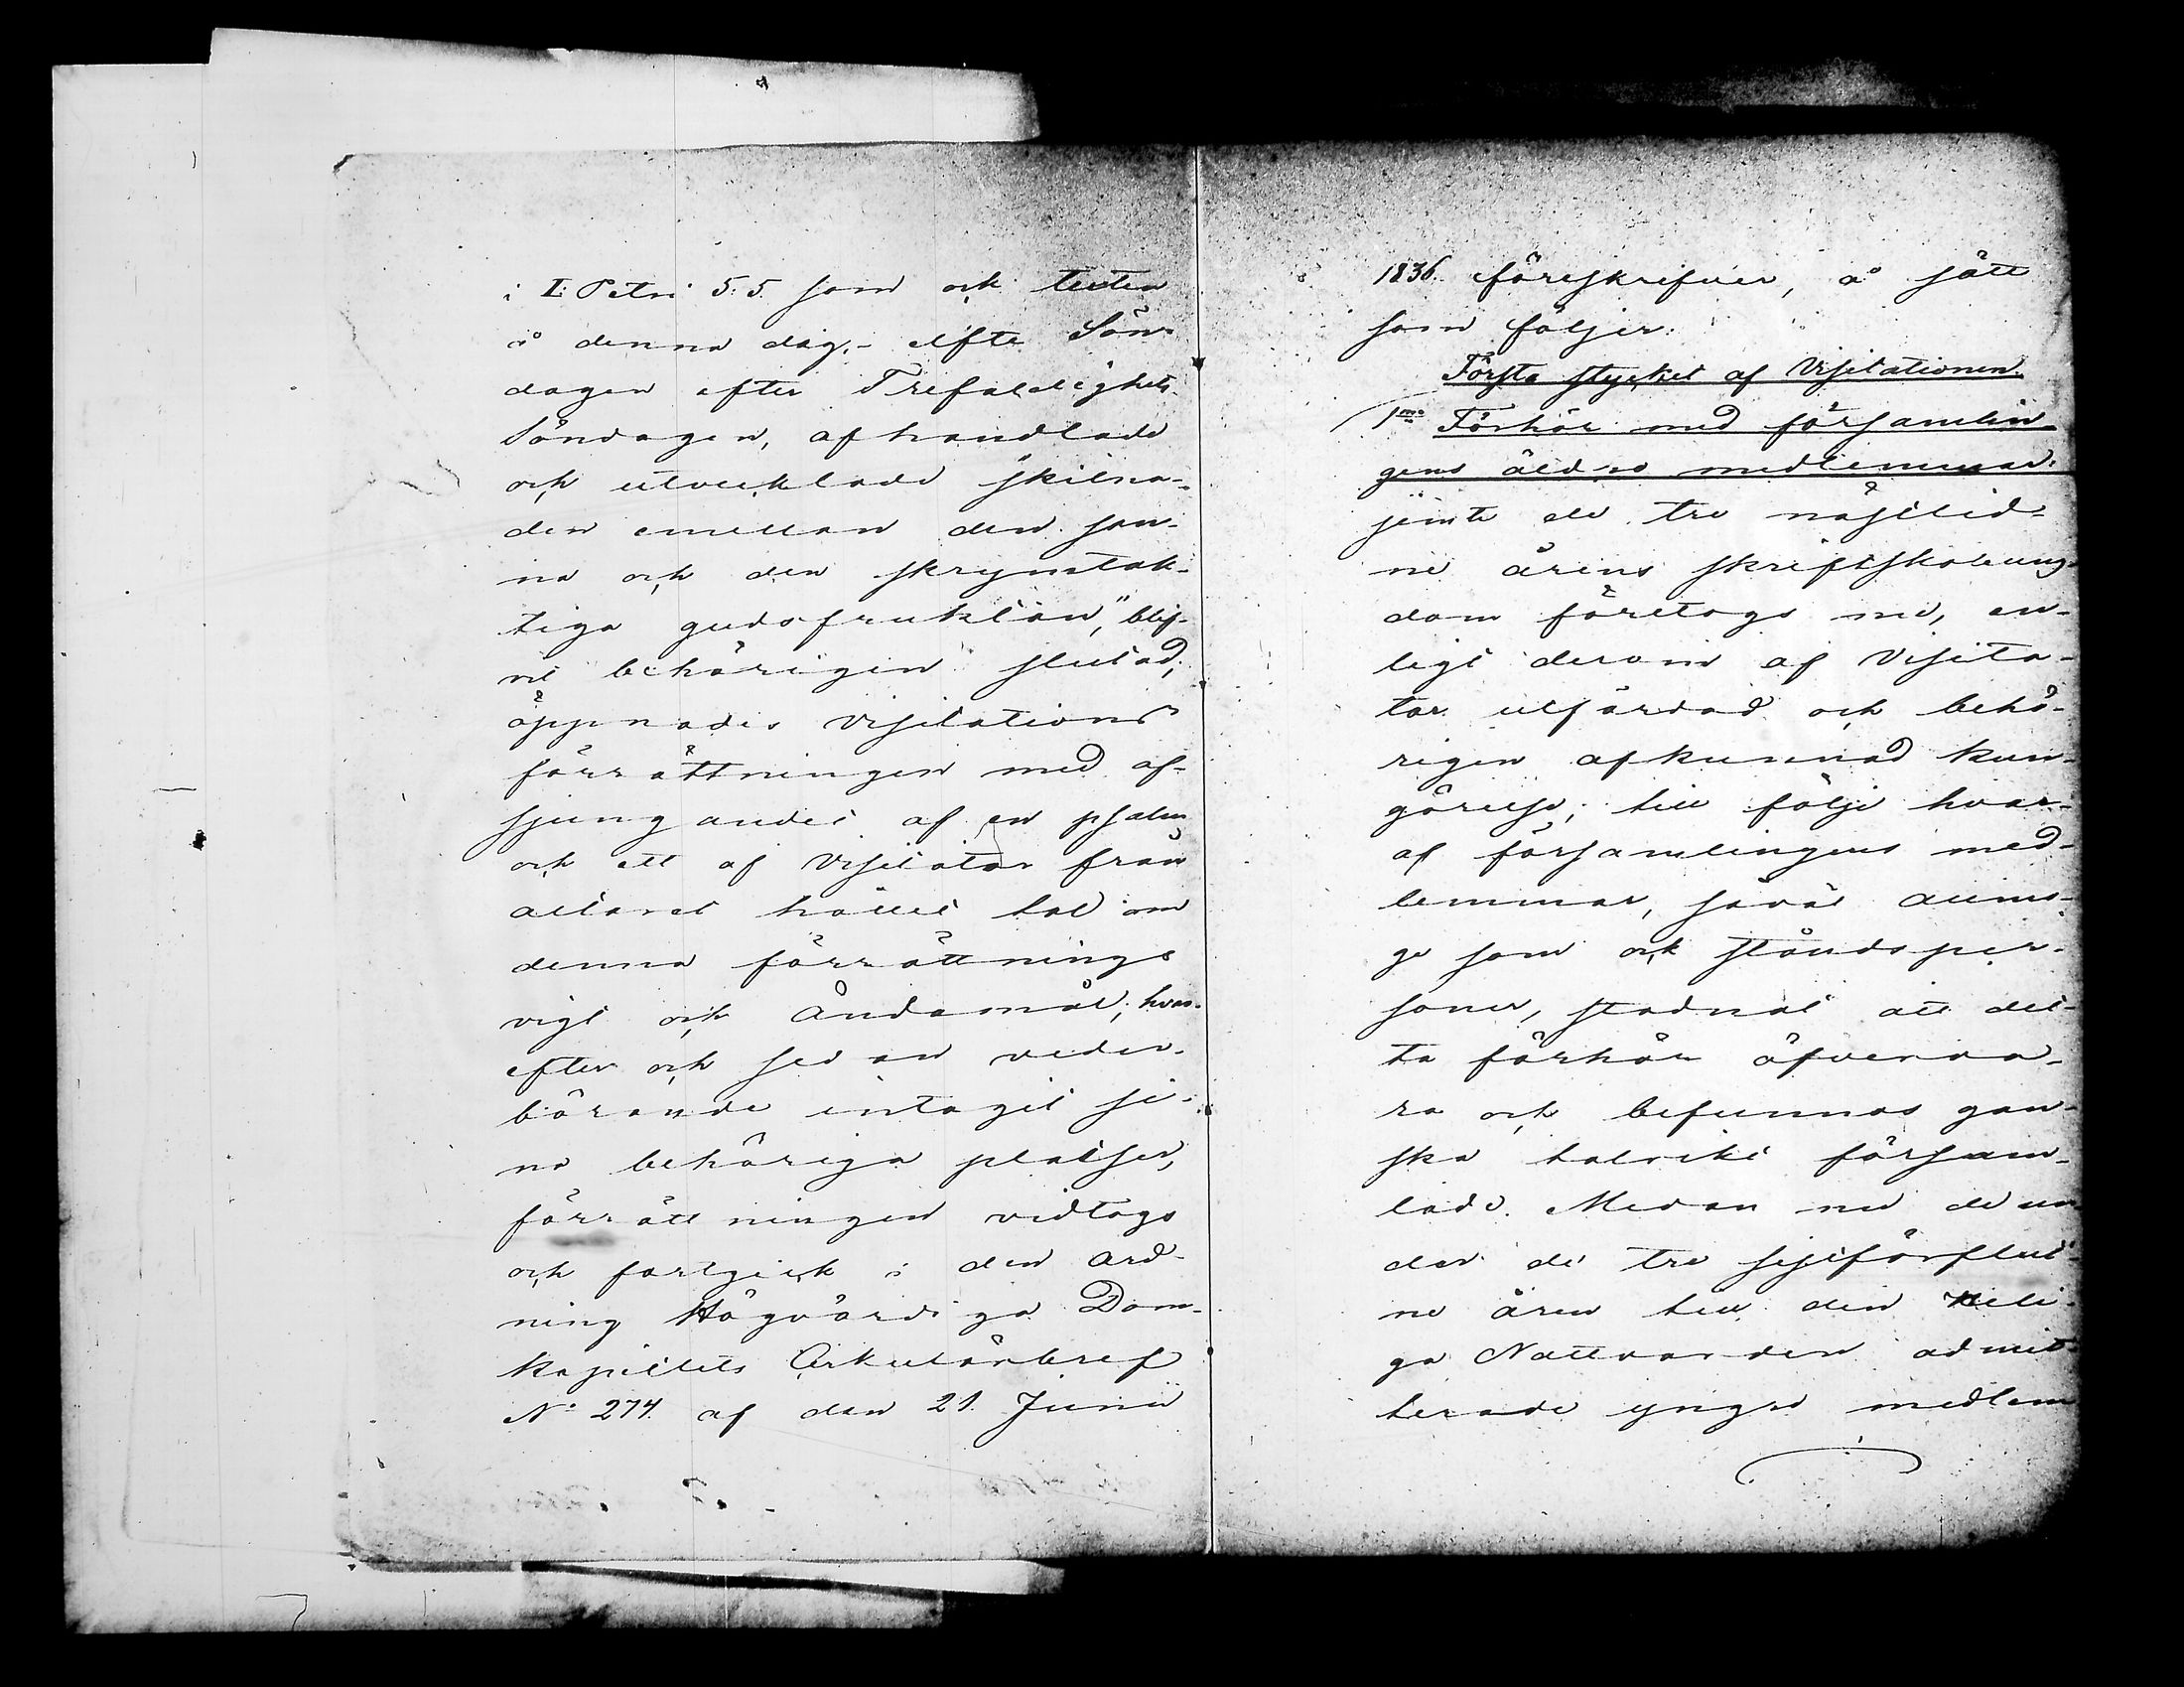 i I: Petri 5:5. som ock texten
å denna dag, - elfte Sön-
dagen efter Trefaldighets
Söndagen, afhandlade
och utvecklade skilna-
den emellan den san-
na och den skrymtak-
tiga gudsfruktan," blif-
vit behörigen slutad,
öppnades visitations
förrättningen med af-
sjungandet af en psalm
och ett af Visitator från
altaret hållet tal om
denna förrättnings
vigt och ändamål; hvar-
efter och sedan veder-
börande intagit si-
na behöriga platser,
förrättningen vidtogs
och fortgick i den ord-
ning Högvördiga Dom-
kapitlets Cirkulärbref
No 274. af den 21. Junii
1836. föreskrifver, å sätt
som följer:
Första stycket af Visitationen.
1mo Förhör med församlin-
gens äldre medlemmar.
jemte de tre nästlid-
ne årens skriftskoleung-
dom företogs nu, en-
ligt derom af Visita-
tor utfärdad och behö-
rigen afkunnad kun-
görelse; till följe hvar-
af församlingens med-
lemmar, såväl allmo-
ge som ock ståndsper-
soner, stadnat att det-
ta förhör öfverva-
ra och befunnos gan-
ska talrikt försam-
lade. Medan nu de un
der de tre sistförflut-
ne åren till den Heli-
ga Nattvarden admit-
terade yngre medlem